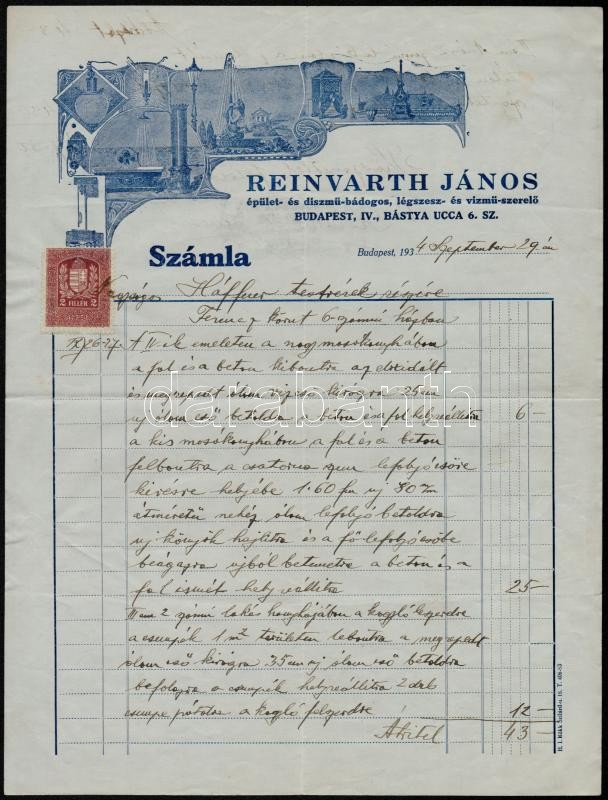 REINVARTH JÁNOS
épület- és díszmű-bádogos, légszesz- és vízmű-szerelő
BUDAPEST, IV., BÁSTYA UCCA 6. SZ.
Számla
Budapest, 1934 September 29.én
2 FILLÉR 2
Nagyságos Háffner testvérek részére
Ferencz körut 6 számú házban
IX/26-27. A IV-ik emeleten a nagymosókonyhában
a fal és a beton kibontva az
és megrepedt ólom vizcső kivágva 25 cm
uj ólom cső betoldva a beton és a fal helyreállitva 6 —
a kis mosókonyhában a fal és a beton
felbontva a csatorna lefolyócsöve
kivésve helyébe 1.60 fm uj 80 m/m
átméretü nehéz ólom lefolyó betoldva
uj könyök hajlitva és a fő-lefolyócsőbe
beágazva ujból betemetve a beton és a
fal ismét helyreállitva 25 —
III em 2 számú lakás konyhájában a
a csempék 1 m² területen lebontva a megrepedt
ólom cső kivágva 35 cm uj ólom cső betoldva
befalazva a csempék helyreállitva 2 drb
csempe pótolva 12 —
Átvitel 43 —
darabanth